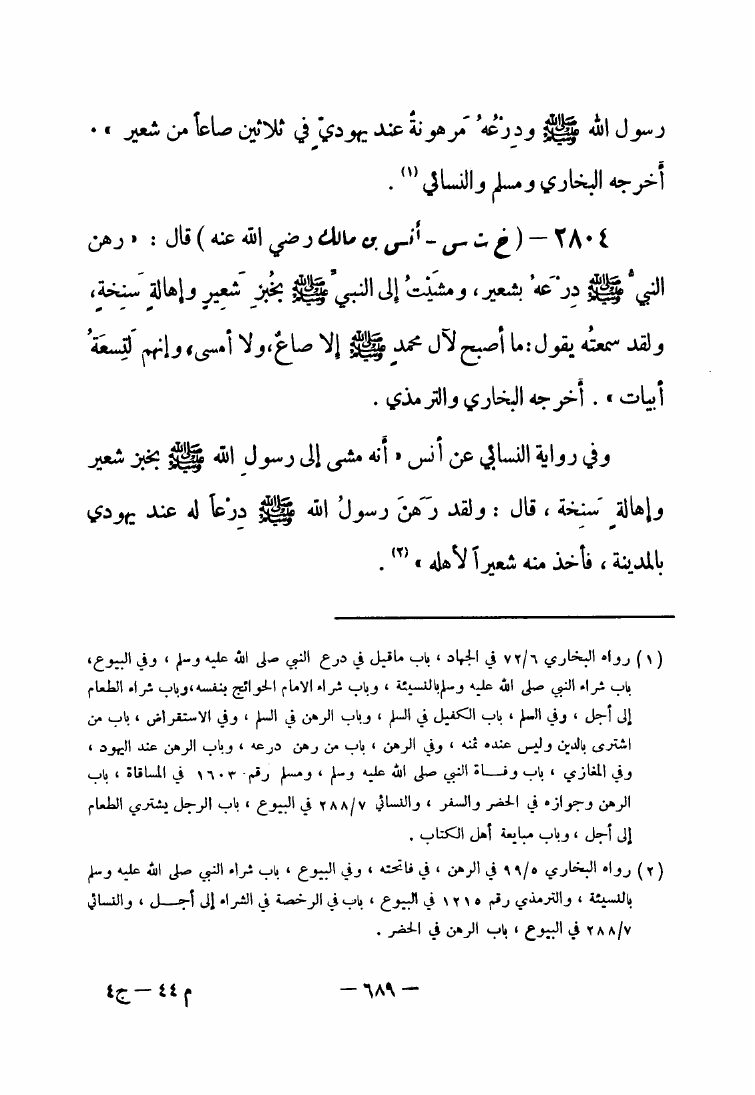 رسول الله ﷺ ودِرْعُهُ مَرهونةٌ عند يهوديٍّ في ثلاثين صاعاً من شعير » .
أخرجه البخاري ومسلم والنسائي (١) .
٢٨٠٤ – ( خ ت س – أنس بن مالك رضي الله عنه ) قال : « رهن
النبيُّ ﷺ دِرْعَهُ بشعير ، ومشَيْتُ إلى النبيِّ ﷺ بخُبزِ شَعيرٍ وإهالةٍ سَنِخةٍ ،
ولقد سمعتُه يقول : ما أصبح لآل محمدٍ ﷺ إلا صاعٌ ، ولا أمسى ، وإنهم لَتِسعَةُ
أبيات » . أخرجه البخاري والترمذي .
وفي رواية النسائي عن أنس « أنه مشى إلى رسولِ الله ﷺ بخبز شعير
وإهالةٍ سَنِخة ، قال : ولقد رَهَنَ رسولُ الله ﷺ دِرْعاً له عند يهودي
بالمدينة ، فأخذ منه شعيراً لأهله » (٢) .
(١) رواه البخاري ٧٢/٦ في الجهاد ، باب ماقيل في درع النبي صلى الله عليه وسلم ، وفي البيوع،
باب شراء النبي صلى الله عليه وسلم بالنسيئة ، وباب شراء الامام الحوائج بنفسه ، وباب شراء الطعام
إلى أجل ، وفي السلم ، باب الكفيل في السلم ، وباب الرهن في السلم ، وفي الاستقراض ، باب من
اشترى بالدين وليس عنده ثمنه ، وفي الرهن ، باب من رهن درعه ، وباب الرهن عند اليهود ،
وفي المغازي ، باب وفـاة النبي صلى الله عليه وسلم ، ومسلم رقم ١٦٠٣ في المساقاة ، باب
الرهن وجوازه في الحضر والسفر ، والنسائي ٢٨٨/٧ في البيوع ، باب الرجل يشتري الطعام
إلى أجل ، وباب مبايعة أهل الكتاب .
(٢) رواه البخاري ٩٩/٥ في الرهن ، في فاتحته ، وفي البيوع ، باب شراء النبي صلى الله عليه وسلم
بالنسيئة ، والترمذي رقم ١٢١٥ في البيوع ، باب في الرخصة في الشراء إلى أجـل ، والنسائي
٢٨٨/٧ في البيوع ، باب الرهن في الحضر .
– ٦٨٩ –
م ٤٤ – ج ٤